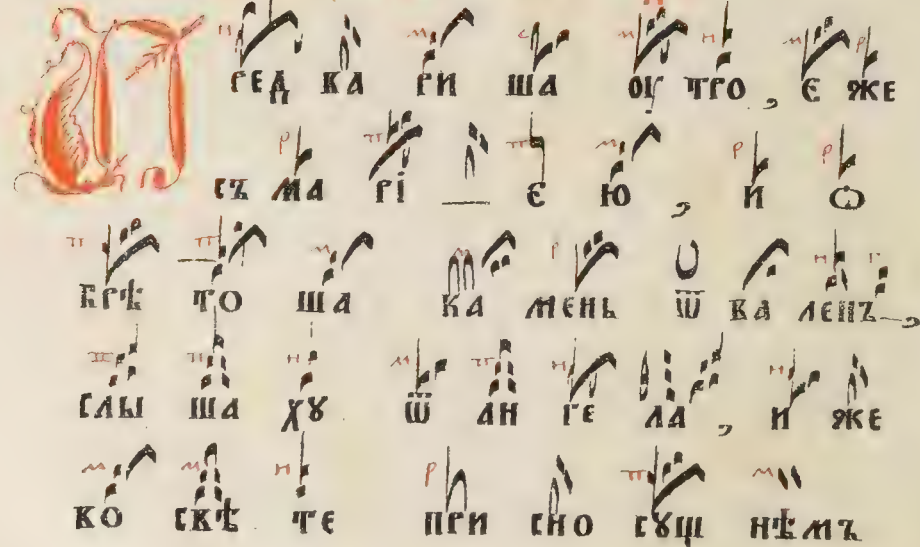 П редва ри ша оу тро , є же
съ ма рі є ю , и ѡ
брѣ то ша ка мень ѿ ва ленъ ,
слы ша хꙋ ѿ ан ге ла , и же
во свѣ те при сно сꙋщ нѣмъ